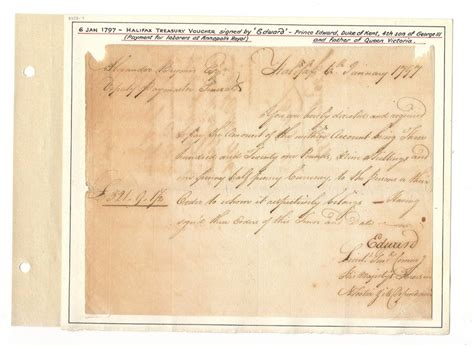 6 JAN 1797 - HALIFAX TREASURY VOUCHER signed by 'Edward' - Prince Edward, Duke of Kent, 4th son of George III
(Payment for laborers at Annapolis Royal) and Father of Queen Victoria.
Halifax 6th January 1797
Deputy Paymaster General
You are hereby directed and required
to pay the Amount of the within Account being Three
hundred and Twenty one Pounds, Nine Shillings and
one penny half penny Currency, to the persons in their
Order to whom it respectively belongs - Having
sign'd their Orders of this Tenor and Date
£321.9.1½
Edward